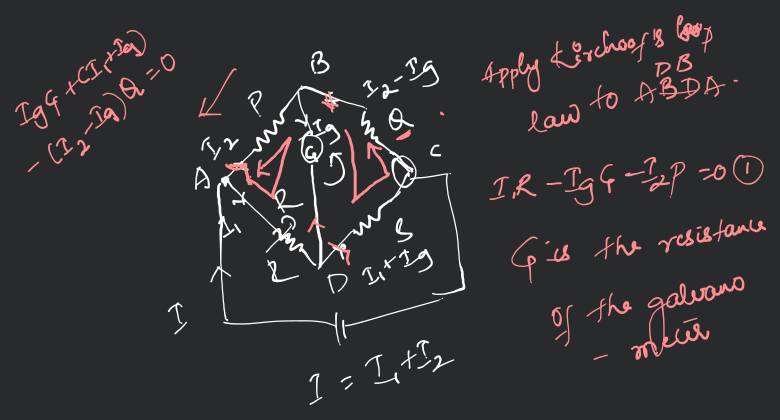 IgG + (I₁+Ig)
- (I₂-Ig)Q = 0
B
P
I₂-Ig
I₂
Ig
Q
G
C
A
R
I₁
S
D
I₁+Ig
I
I = I₁+I₂
Apply Kirchoof's loop
DB
law to ABDA.
I₁R - IgG - I₂P = 0 ①
G is the resistance
of the galvano
- meter